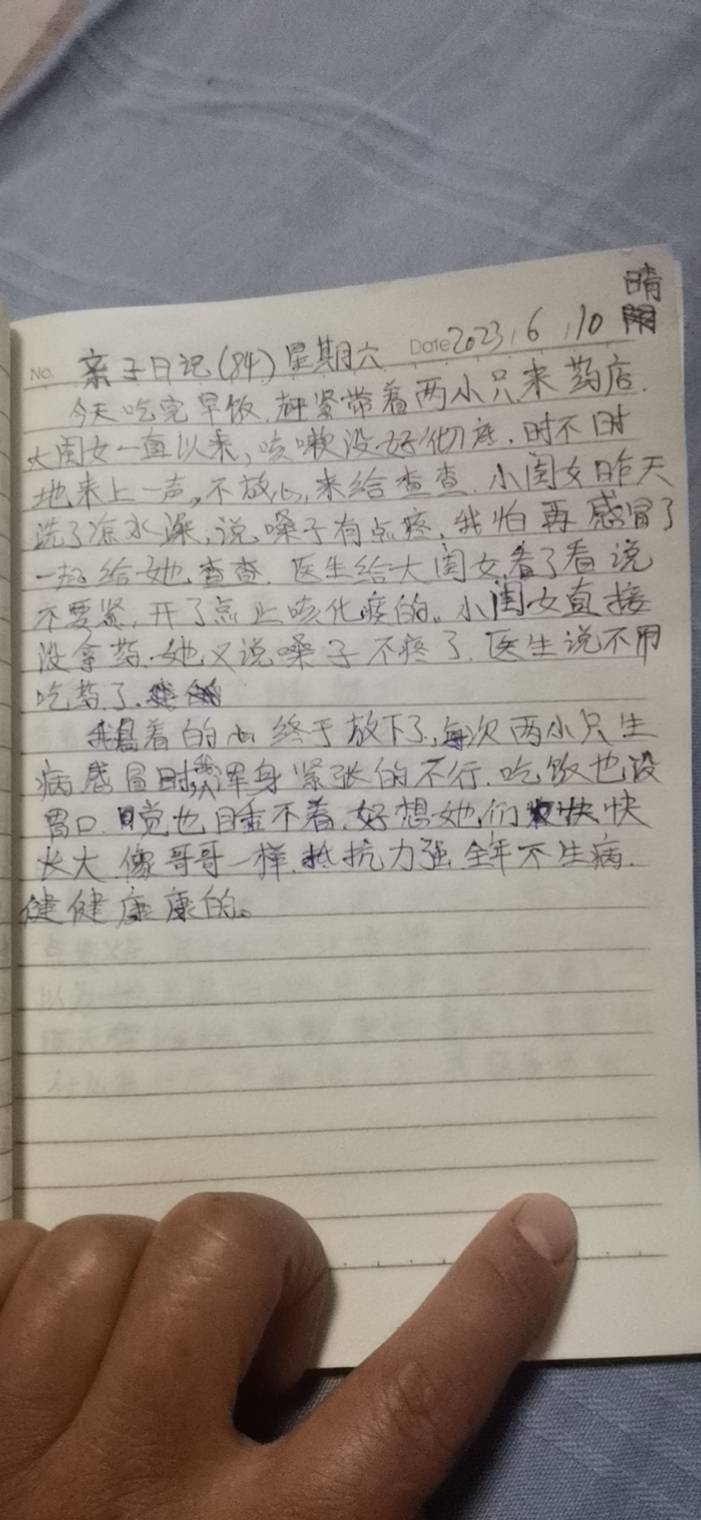 晴
No. 亲子日记(84) 星期六 Date 2023.6.10
今天吃完早饭.赶紧带着两小只来药店.
大闺女一直以来,咳嗽没好彻底.时不时
地来上一声,不放心,来给查查.小闺女昨天
洗了凉水澡,说嗓子有点疼,我怕再感冒了
一起给她查查.医生给大闺女看了看说
不要紧,开了点止咳化痰的。小闺女直接
没拿药.她又说嗓子不疼了.医生说不用
吃药了.
我悬着的心终于放下了,每次两小只生
病感冒时我浑身紧张的不行.吃饭也没
胃口.觉也睡不着.好想她们快快
长大.像哥哥一样.抵抗力强.全年不生病.
健健康康的。